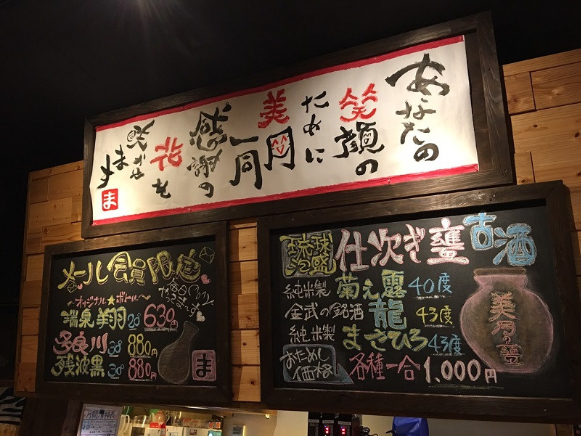 あなたの
笑顔の
ために
美
一同
感謝の
花を
咲かせ
ます
ま
メール会員限定
オリジナル★ボトル
630円
多良川
880円
残波黒
880円
ま
琉球
仕次ぎ甕古酒
純米製 菊之露 40度
金武の銘酒 龍 43度
純米製 まさひろ 43度
おためし
価格!
各種一合 1,000円